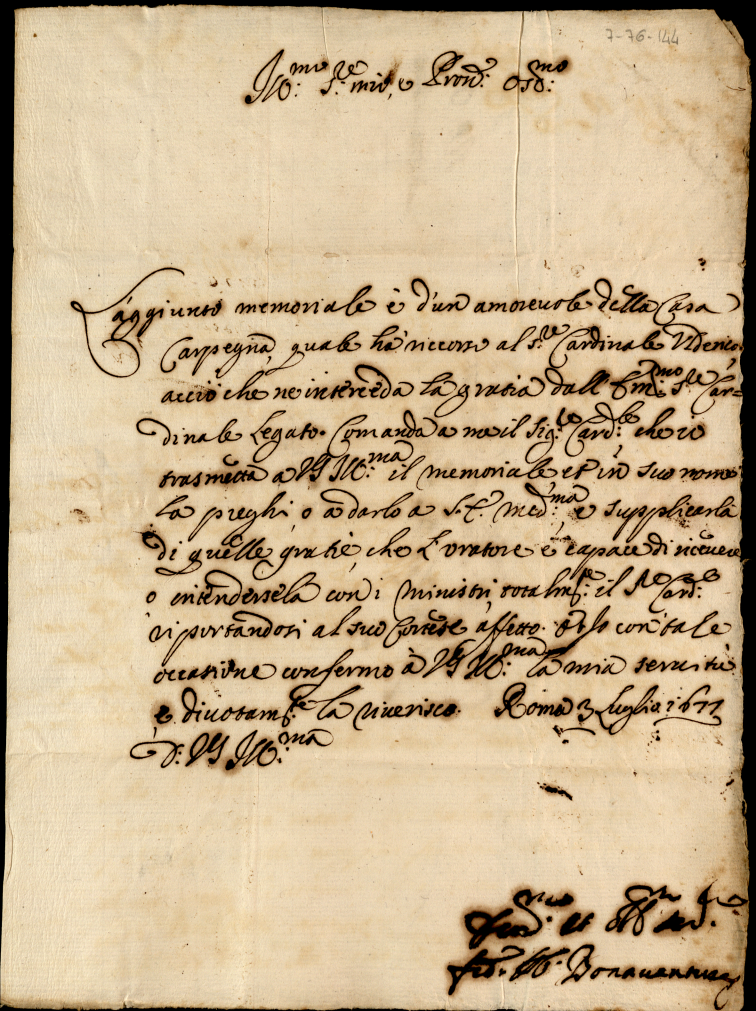 7-76-144
Ill:mo S:re mio, e Pron: Oss:mo
L'aggiunto memoriale è d'un amorevole della Casa
Carpegna, quale hà ricorso al S:re Cardinale Ulderico,
acciò che ne interceda la gratia dall' Em:mo S:re Car=
dinale Legato. Comanda a me il Sig:re Card:le che io
trasmetta a VS Ill:ma il memoriale et in suo nome
la preghi, o a darlo a S.E. med:ma e supplicarla
di quelle gratie, che l'oratore è capace di ricevere
o intendersela con i ministri, il S:re Card:le
riportandosi al suo cortese affetto. Et Io con tale
occasione confermo à VS Ill:ma la mia servitù
e divotam:te la riverisco. Roma 3 Luglio 1677
D: VS Ill:ma
et
Bonaventura